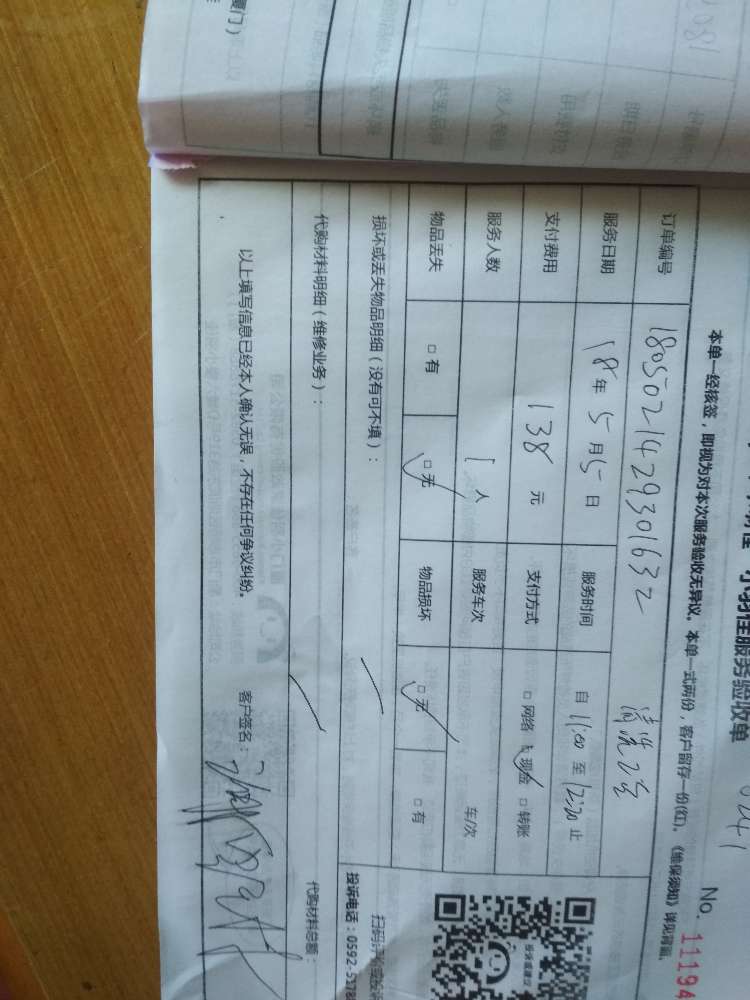 服务验收单
No. 11194
本单一经核签，即视为对本次服务验收无异议。本单一式两份，客户留存一份(红)。《维保须知》详见背面。
订单编号 1805021429301632 清洗2台
服务日期 18年 5月5日 服务时间 自 11:00 至 12:20 止
支付费用 138 元 支付方式 □ 网络 □ 现金 □ 转账
服务人数 1 人 服务车次 车/次
物品丢失 □ 有 □ 无 物品损坏 □ 无 □ 有
损坏或丢失物品明细（没有可不填）：
代购材料明细（维修业务）：
代购材料总额：
以上填写信息已经本人确认无误，不存在任何争议纠纷。 客户签名：
投诉电话：0592-5378